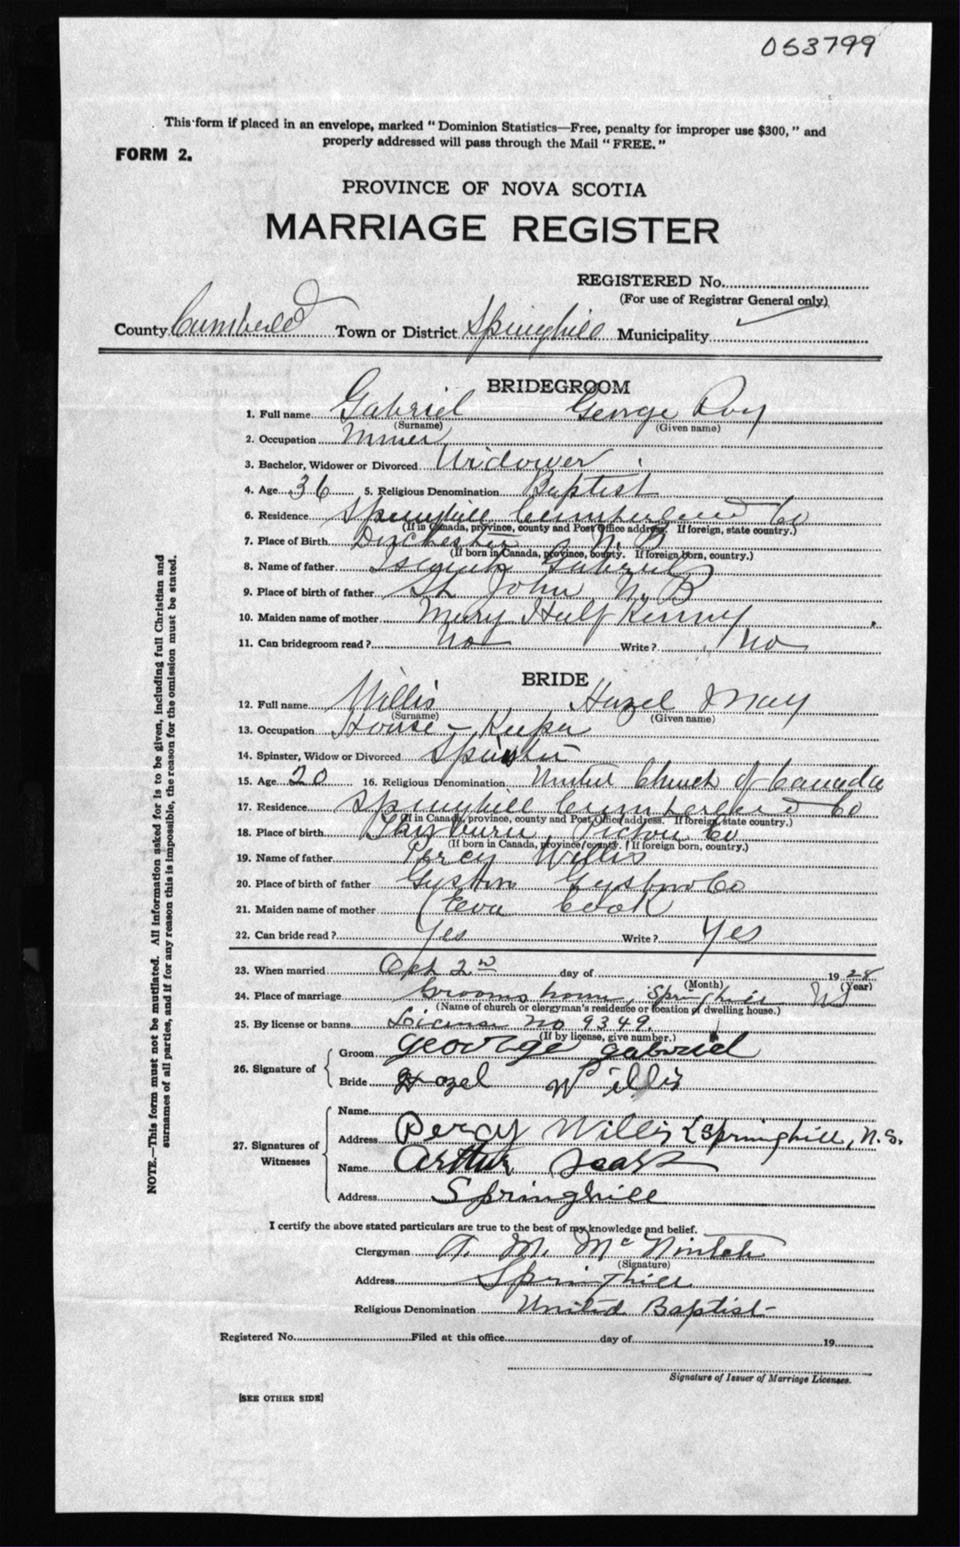 053799
This form if placed in an envelope, marked "Dominion Statistics—Free, penalty for improper use $300," and
properly addressed will pass through the Mail "FREE."
FORM 2.
PROVINCE OF NOVA SCOTIA
MARRIAGE REGISTER
REGISTERED No.
(For use of Registrar General only)
County Town or District Springhill Municipality
BRIDEGROOM
1. Full name Gabriel George Roy
(Surname) (Given name)
2. Occupation Miner
3. Bachelor, Widower or Divorced Widower
4. Age 36 5. Religious Denomination Baptist
6. Residence Springhill Cumberland Co
(If in Canada, province, county and Post Office address. If foreign, state country.)
7. Place of Birth Dorchester N. B
(If born in Canada, province, county. If foreign born, country.)
8. Name of father Gabriel
9. Place of birth of father St John N. B
10. Maiden name of mother Mary
11. Can bridegroom read? No Write? No
BRIDE
12. Full name Willis Hazel May
(Surname) (Given name)
13. Occupation House-Keeper
14. Spinster, Widow or Divorced Spinster
15. Age 20 16. Religious Denomination United Church of Canada
17. Residence Springhill Cumberland Co
(If in Canada, province, county and Post Office address. If foreign, state country.)
18. Place of birth Pictou Co
(If born in Canada, province, county. If foreign born, country.)
19. Name of father Percy Willis
20. Place of birth of father
21. Maiden name of mother Eva Cook
22. Can bride read? Yes Write? Yes
23. When married 2nd day of 1928
(Month) (Year)
24. Place of marriage Grooms home, Springhill NS
(Name of church or clergyman's residence or location of dwelling house.)
25. By license or banns License No 9349.
(If by license, give number.)
26. Signature of Groom George Gabriel
Bride Hazel Willis
27. Signatures of Witnesses
Name
Address Percy Willis Springhill, N.S.
Name Arthur
Address Springhill
I certify the above stated particulars are true to the best of my knowledge and belief.
Clergyman
(Signature)
Address Springhill
Religious Denomination United Baptist
Registered No. Filed at this office day of 19
Signature of Issuer of Marriage Licenses.
[SEE OTHER SIDE]
NOTE.—This form must not be mutilated. All information asked for is to be given, including full Christian and
surnames of all parties, and if for any reason this is impossible, the reason for the omission must be stated.